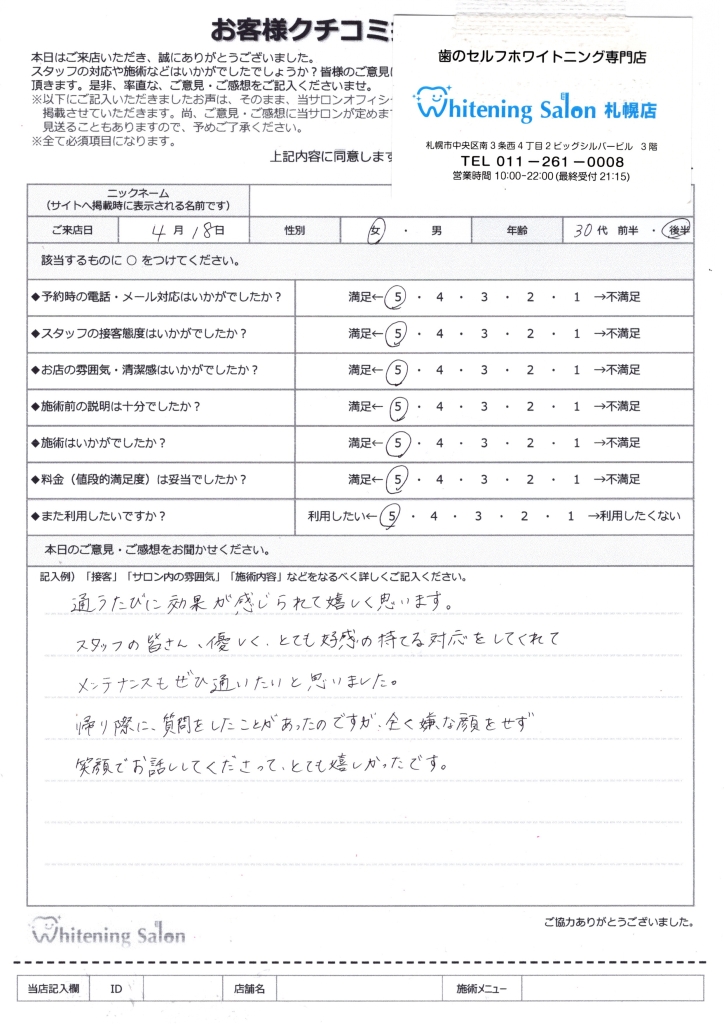 お客様クチコミ
本日はご来店いただき、誠にありがとうございました。
スタッフの対応や施術などはいかがでしたでしょうか?皆様のご意見
頂きます。是非、率直な、ご意見・ご感想をご記入くださいませ。
※以下にご記入いただきましたお声は、そのまま、当サロンオフィシ
掲載させていただきます。尚、ご意見・ご感想に当サロンが定めま
見送ることもありますので、予めご了承ください。
※全て必須項目になります。
上記内容に同意します
歯のセルフホワイトニング専門店
Whitening Salon 札幌店
札幌市中央区南3条西4丁目2ビッグシルバービル 3階
TEL 011-261-0008
営業時間 10:00-22:00(最終受付 21:15)
ニックネーム
(サイトへ掲載時に表示される名前です)
ご来店日 4月18日 性別 女 ・ 男 年齢 30代 前半 ・ 後半
該当するものに ○ をつけてください。
◆予約時の電話・メール対応はいかがでしたか? 満足← 5 ・ 4 ・ 3 ・ 2 ・ 1 →不満足
◆スタッフの接客態度はいかがでしたか? 満足← 5 ・ 4 ・ 3 ・ 2 ・ 1 →不満足
◆お店の雰囲気・清潔感はいかがでしたか? 満足← 5 ・ 4 ・ 3 ・ 2 ・ 1 →不満足
◆施術前の説明は十分でしたか? 満足← 5 ・ 4 ・ 3 ・ 2 ・ 1 →不満足
◆施術はいかがでしたか? 満足← 5 ・ 4 ・ 3 ・ 2 ・ 1 →不満足
◆料金(値段的満足度)は妥当でしたか? 満足← 5 ・ 4 ・ 3 ・ 2 ・ 1 →不満足
◆また利用したいですか? 利用したい← 5 ・ 4 ・ 3 ・ 2 ・ 1 →利用したくない
本日のご意見・ご感想をお聞かせください。
記入例)「接客」「サロン内の雰囲気」「施術内容」などをなるべく詳しくご記入ください。
通うたびに効果が感じられて嬉しく思います。
スタッフの皆さん、優しく、とても好感の持てる対応をしてくれて
メンテナンスもぜひ通いたいと思いました。
帰り際に、質問をしたことがあったのですが、全く嫌な顔をせず
笑顔でお話ししてくださって、とても嬉しかったです。
ご協力ありがとうございました。
Whitening Salon
当店記入欄 ID 店舗名 施術メニュー